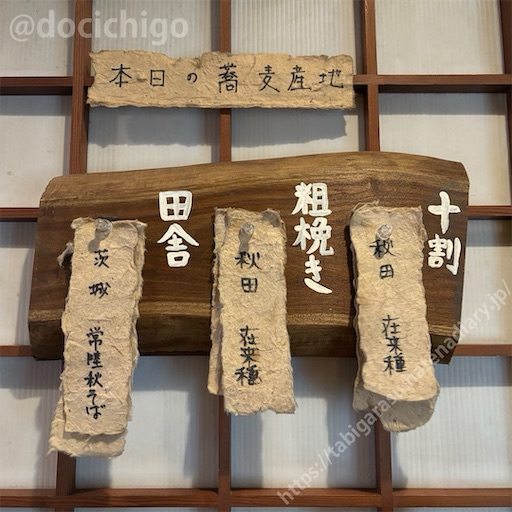 @docichigo
本日の蕎麦産地
十割
秋田 在来種
粗挽き
秋田 在来種
田舎
茨城 常陸秋そば
https://tabigarasu-menadiary.jp/